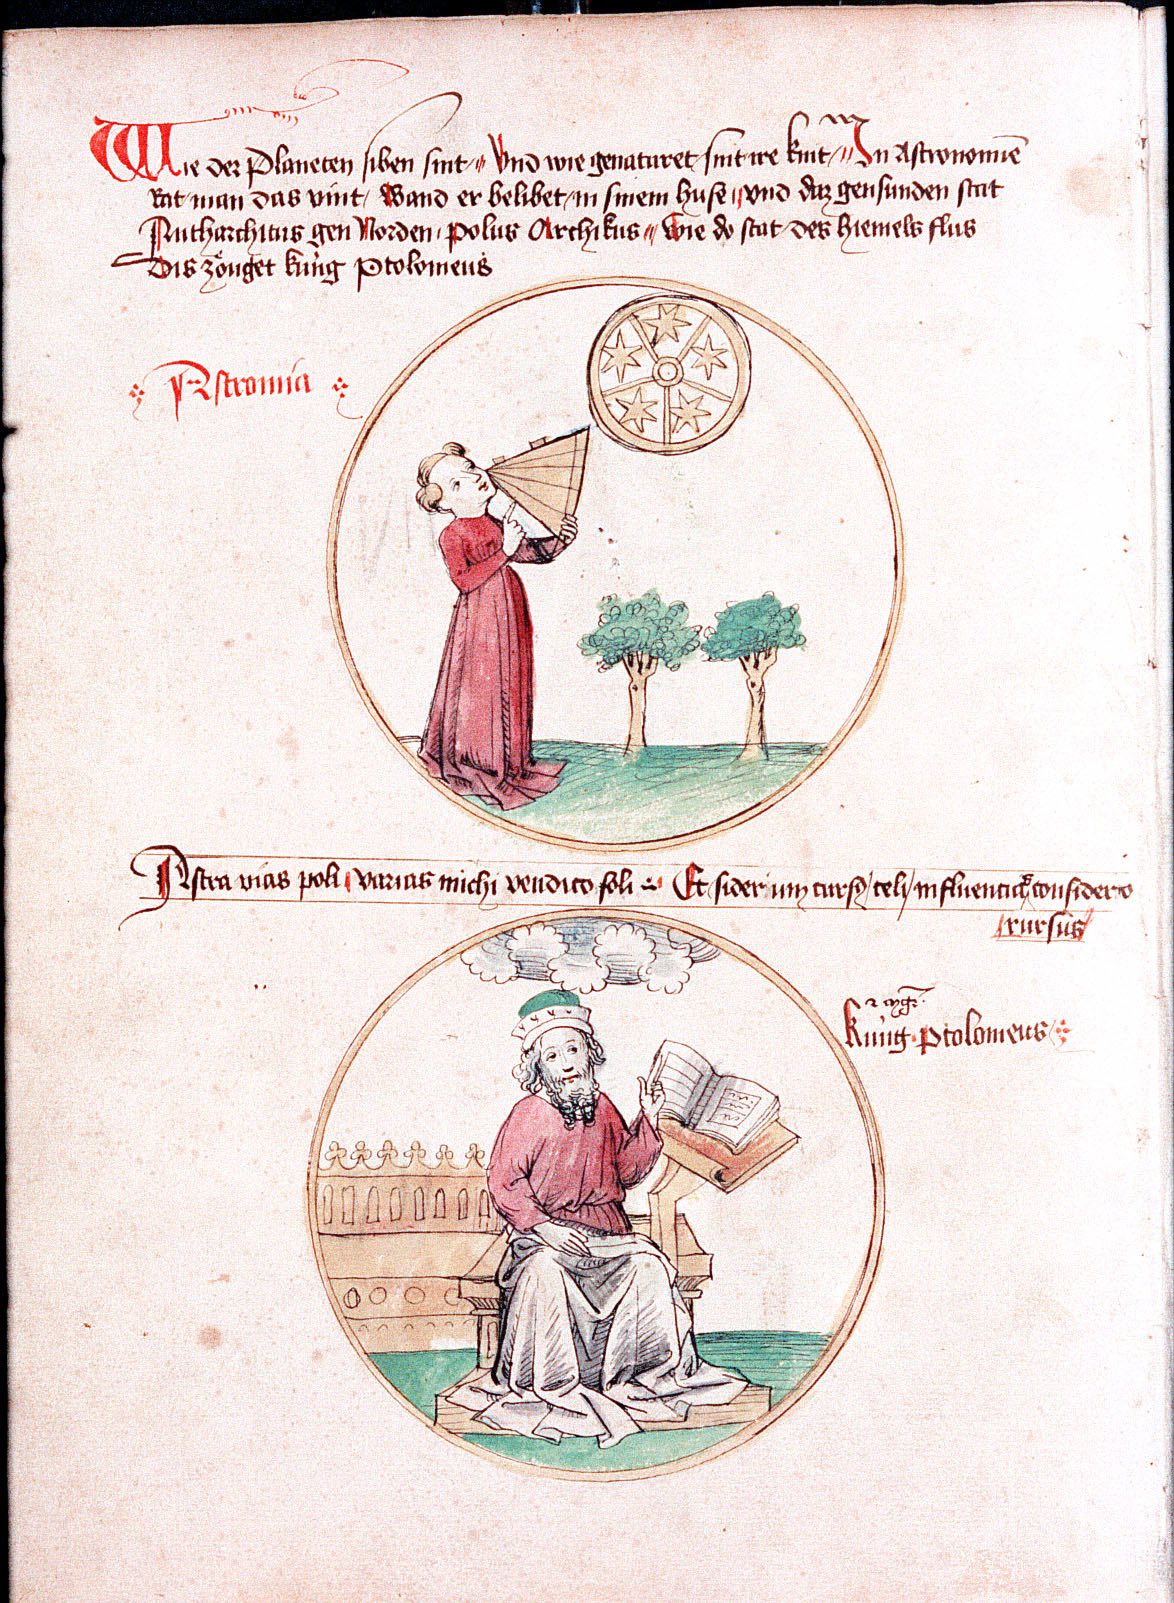 Wie der Planeten siben sint · Vnd wie genaturet sint ire kint · In Astronomie
Rat man das vint / Wand er belibet / in sinem huse · vnd daz gen sunden stat
Antharchicus gen Norden · Polus Archikus · Wie do stat des hiemels flus
Dis zöuget kúng Ptolomeus
Astromia
Astra vias poli varias michi vendico soli Et siderum cursꝰ celi influencia considero
rursus
Kúng Ptolomeus